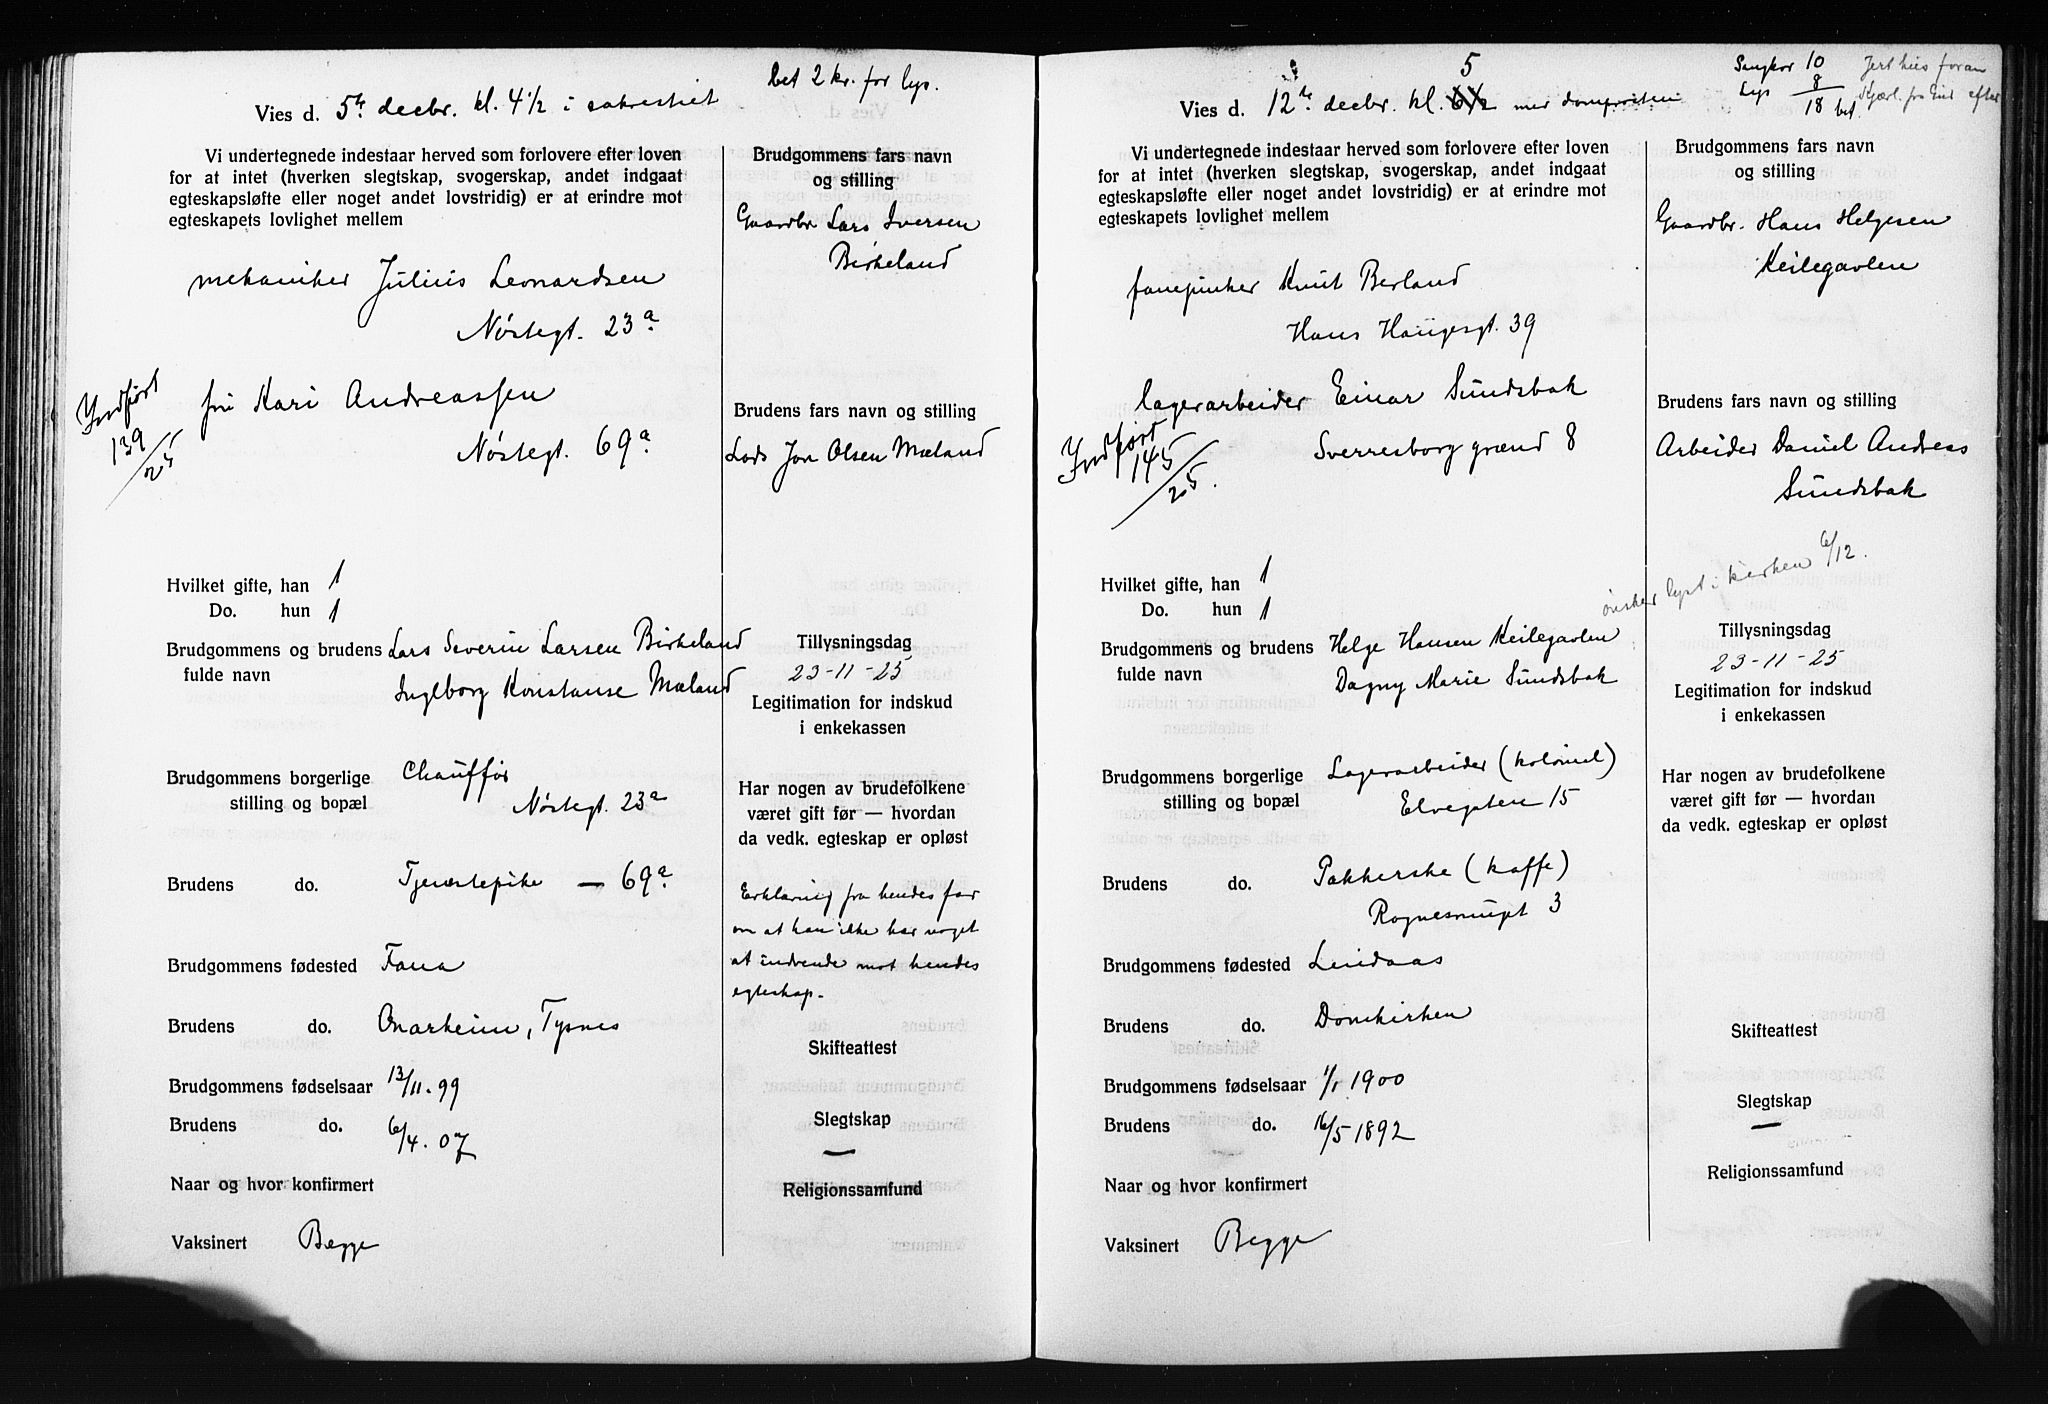 bet 2 kr. for lys.
Vies d. 5te decbr. kl. 4 1/2 i sakrestiet
Vi undertegnede indestaar herved som forlovere efter loven
for at intet (hverken slegtskap, svogerskap, andet indgaat
egteskapsløfte eller noget andet lovstridig) er at erindre mot
egteskapets lovlighet mellem
mekaniker Julius Leonardsen
Nøstegt. 23a
fru Kari Andreassen
Nøstegt. 69a
Indført
139/25
Brudgommens fars navn
og stilling
Gaardbr. Lars Iversen
Birkeland
Brudens fars navn og stilling
Lods Jon Olsen Mæland
Hvilket gifte, han 1
Do. hun 1
Brudgommens og brudens Lars Severin Larsen Birkeland
fulde navn Ingeborg Konstanse Mæland
Brudgommens borgerlige Chauffør
stilling og bopæl Nøstegt. 23a
Brudens do. Tjenestepike — 69a
Brudgommens fødested Fana
Brudens do. Onarheim, Tysnes
Brudgommens fødselsaar 13/11.99
Brudens do. 6/4.07
Naar og hvor konfirmert
Vaksinert Begge
Tillysningsdag
23-11-25
Legitimation for indskud
i enkekassen
Har nogen av brudefolkene
været gift før — hvordan
da vedk. egteskap er opløst
Erklæring fra hendes far
om at han ikke har noget
at indvende mot hendes
egteskap.
Skifteattest
Slegtskap
—
Religionssamfund
Sangkor 10
Lys 8
18 bet.
5
Vies d. 12te decbr. kl. 6 1/2 med domprosten
Vi undertegnede indestaar herved som forlovere efter loven
for at intet (hverken slegtskap, svogerskap, andet indgaat
egteskapsløfte eller noget andet lovstridig) er at erindre mot
egteskapets lovlighet mellem
Knut Berland
Hans Haugesgt. 39
lagerarbeider Einar Sundsbak
Sverresborg grænd 8
Indført
145/25.
Brudgommens fars navn
og stilling
Gaardbr. Hans Helgesen
Keilegavlen
Brudens fars navn og stilling
Arbeider Daniel Andreas
Sundsbak
ønsker lyst i kirken 6/12.
Hvilket gifte, han 1
Do. hun 1
Brudgommens og brudens Helge Hansen Keilegavlen
fulde navn Dagny Marie Sundsbak
Brudgommens borgerlige Lagerarbeider (kolonial)
stilling og bopæl Elvegaten 15
Brudens do. Pakkerske (kaffe)
3
Brudgommens fødested Lindaas
Brudens do. Domkirken
Brudgommens fødselsaar 1/1 1900
Brudens do. 16/5 1892
Naar og hvor konfirmert
Vaksinert Begge
Tillysningsdag
23-11-25
Legitimation for indskud
i enkekassen
Har nogen av brudefolkene
været gift før — hvordan
da vedk. egteskap er opløst
Skifteattest
Slegtskap
—
Religionssamfund